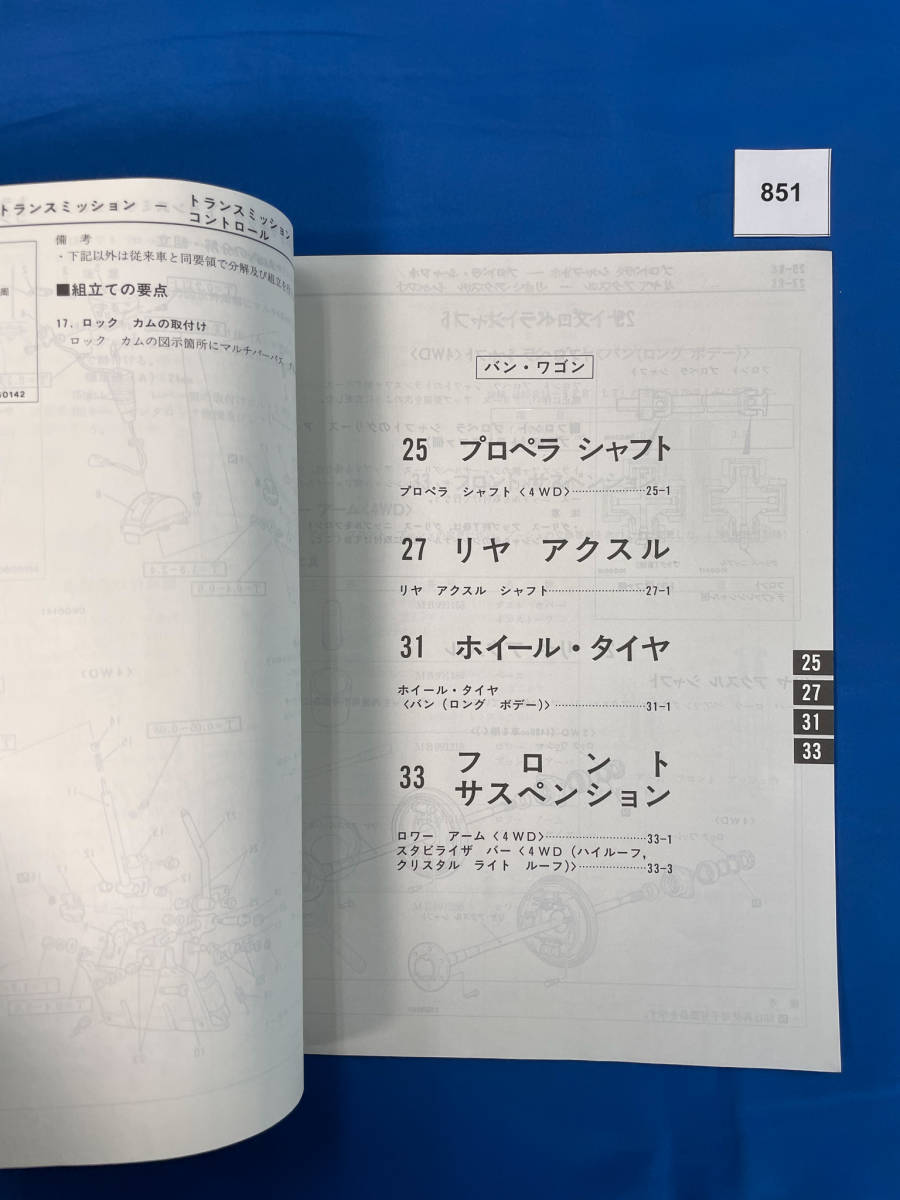 851
トランスミッション ー トランスミッション
コントロール
備 考
・下記以外は従来車と同要領で分解及び組立を行
■組立ての要点
17. ロック カムの取付け
ロック カムの図示箇所にマルチパーパス
バン・ワゴン
25 プロペラ シャフト
プロペラ シャフト〈4WD〉…………………25-1
27 リヤ アクスル
リヤ アクスル シャフト………………………27-1
31 ホイール・タイヤ
ホイール・タイヤ
〈バン(ロング ボデー)〉……………………31-1
33 フロント
サスペンション
ロワー アーム〈4WD〉………………………33-1
スタビライザ バー〈4WD(ハイルーフ,
クリスタル ライト ルーフ)〉………………33-3
25
27
31
33